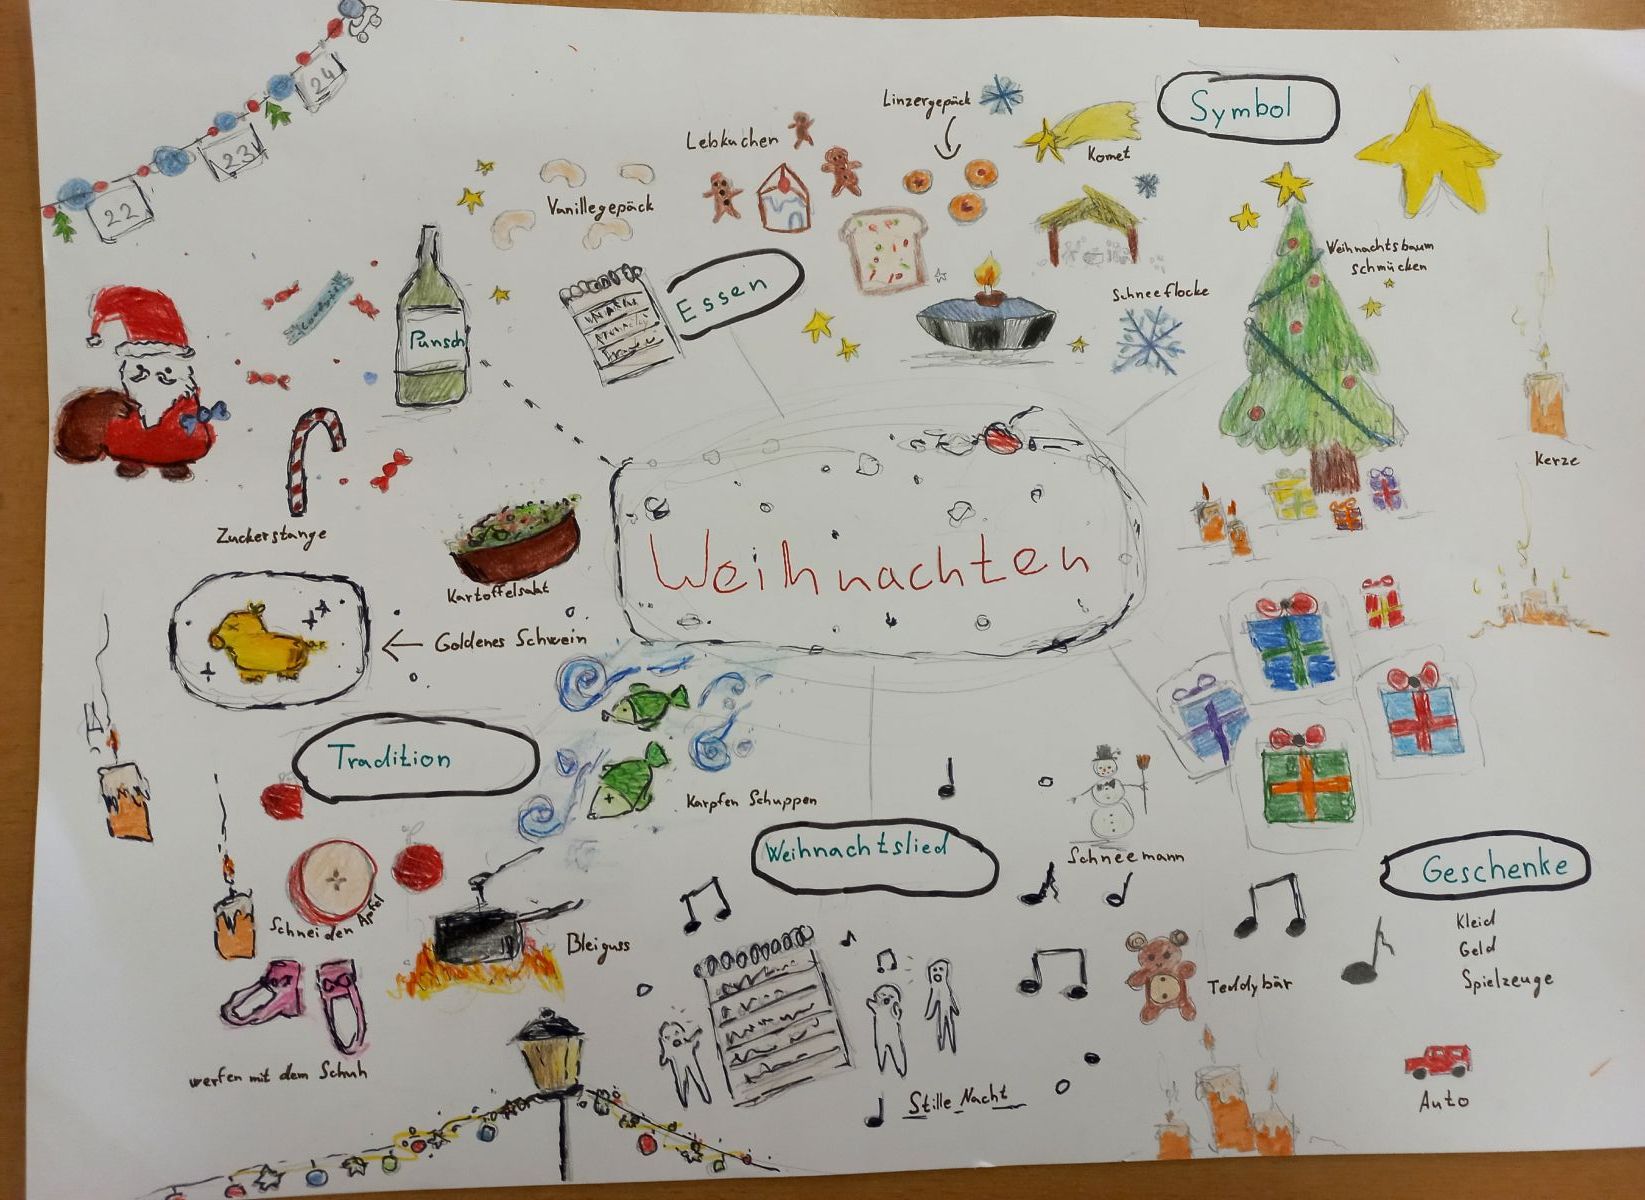 24
23
22
Linzergepäck
Symbol
Lebkuchen
Komet
Vanillegepäck
Weihnachtsbaum
schmücken
Essen
Schneeflocke
Punsch
Kerze
Zuckerstange
Weihnachten
Kartoffelsalat
Goldenes Schwein
Tradition
Karpfen Schuppen
Weihnachtslied
Schneemann
Geschenke
Schneiden Apfel
Bleiguss
Kleid
Geld
Spielzeuge
Teddybär
werfen mit dem Schuh
Stille Nacht
Auto